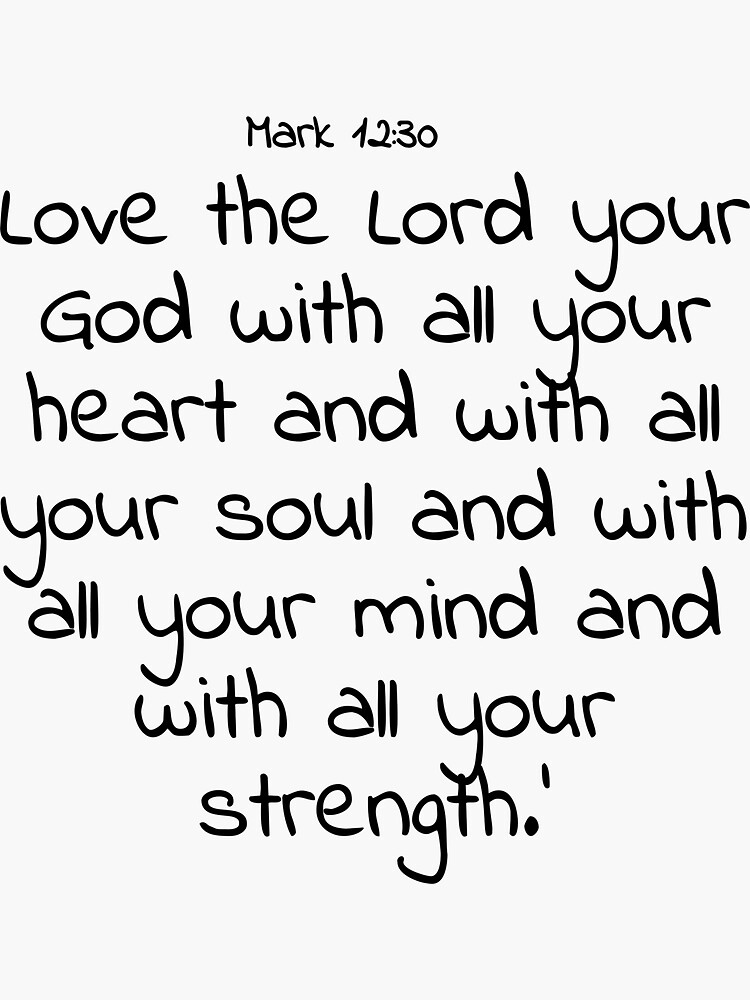 Mark 12:30
Love the Lord your
God with all your
heart and with all
your soul and with
all your mind and
with all your
strength.'